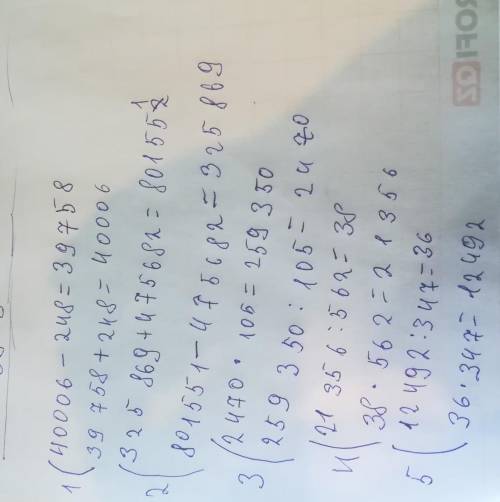 1(40006-248=39758
39758+248=40006
2(325869+475682=801551
801551-475682=325869
3(2470·105=259350
259350:105=2470
4(21356:562=38
38·562=21356
5(12492:347=36
36·347=12492
PROFI